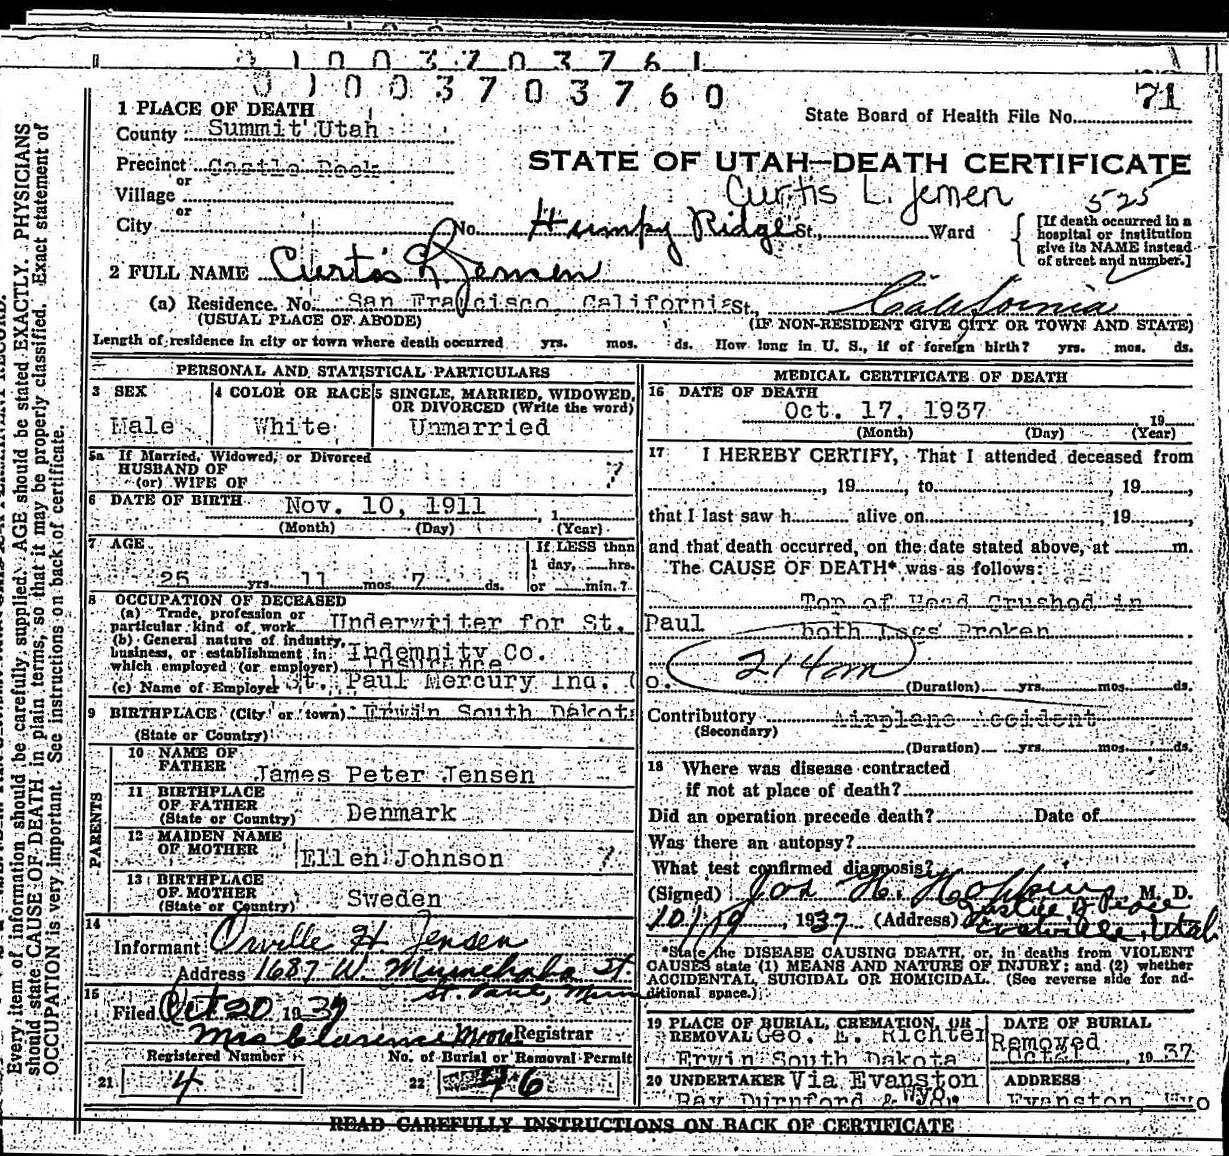 0 1 0 0 3 7 0 3 7 6 1
0 1 0 0 3 7 0 3 7 6 0
71
State Board of Health File No.
1 PLACE OF DEATH
County Summit Utah
Precinct Castle Rock
or
Village
or
City
STATE OF UTAH—DEATH CERTIFICATE
Curtis L. Jensen 525
No. Humpy Ridge St., Ward
[If death occurred in a hospital or institution give its NAME instead of street and number.]
2 FULL NAME Curtis L. Jensen
(a) Residence. No. San Francisco, California St. California
(USUAL PLACE OF ABODE) (IF NON-RESIDENT GIVE CITY OR TOWN AND STATE)
Length of residence in city or town where death occurred yrs. mos. ds. How long in U. S., if of foreign birth? yrs. mos. ds.
PERSONAL AND STATISTICAL PARTICULARS
3 SEX 4 COLOR OR RACE 5 SINGLE, MARRIED, WIDOWED,
OR DIVORCED (Write the word)
Male White Unmarried
5a If Married, Widowed, or Divorced
HUSBAND OF
(or) WIFE OF
6 DATE OF BIRTH Nov. 10, 1911 , 1
(Month) (Day) (Year)
7 AGE If LESS than
1 day, hrs.
25 yrs. 11 mos. 7 ds. or min.?
8 OCCUPATION OF DECEASED
(a) Trade, profession or
particular kind of work Underwriter for St. Paul
(b) General nature of industry,
business, or establishment in Indemnity Co.
which employed (or employer) Insurance
(c) Name of Employer St. Paul Mercury Ind. Co.
9 BIRTHPLACE (City or town) Erwin South Dakota
(State or Country)
PARENTS
10 NAME OF
FATHER James Peter Jensen
11 BIRTHPLACE
OF FATHER Denmark
(State or Country)
12 MAIDEN NAME
OF MOTHER Ellen Johnson
13 BIRTHPLACE
OF MOTHER Sweden
(State or Country)
14
Informant Orville H. Jensen
Address 1687 W. Minnehaha St.
St. Paul, Minn
15
Filed Oct 20 1937
Mrs Clarence Moore Registrar
Registered Number No. of Burial or Removal Permit
21 4 22 46
MEDICAL CERTIFICATE OF DEATH
16 DATE OF DEATH
Oct. 17, 1937 19
(Month) (Day) (Year)
17 I HEREBY CERTIFY, That I attended deceased from
, 19 , to , 19 ,
that I last saw h alive on , 19 ,
and that death occurred, on the date stated above, at m.
The CAUSE OF DEATH* was as follows:
Top of Head Crushed in
both Legs Broken
214am
(Duration) yrs. mos. ds.
Contributory Airplane Accident
(Secondary)
(Duration) yrs. mos. ds.
18 Where was disease contracted
if not at place of death?
Did an operation precede death? Date of
Was there an autopsy?
What test confirmed diagnosis?
(Signed) Jos H. Hopkins M. D.
Justice of Peace
10/19, 1937 (Address) Coalville, Utah
*State the DISEASE CAUSING DEATH, or, in deaths from VIOLENT
CAUSES state (1) MEANS AND NATURE OF INJURY; and (2) whether
ACCIDENTAL, SUICIDAL OR HOMICIDAL. (See reverse side for ad-
ditional space.)
19 PLACE OF BURIAL, CREMATION, OR DATE OF BURIAL
REMOVAL Geo. E. Richter Removed
Erwin South Dakota Oct 21 , 1937
20 UNDERTAKER Via Evanston ADDRESS
Wyo.
Ray Durnford & Son. Evanston, Wyo
READ CAREFULLY INSTRUCTIONS ON BACK OF CERTIFICATE
Every item of information should be carefully supplied. AGE should be stated EXACTLY. PHYSICIANS
should state CAUSE OF DEATH in plain terms, so that it may be properly classified. Exact statement of
OCCUPATION is very important. See instructions on back of certificate.